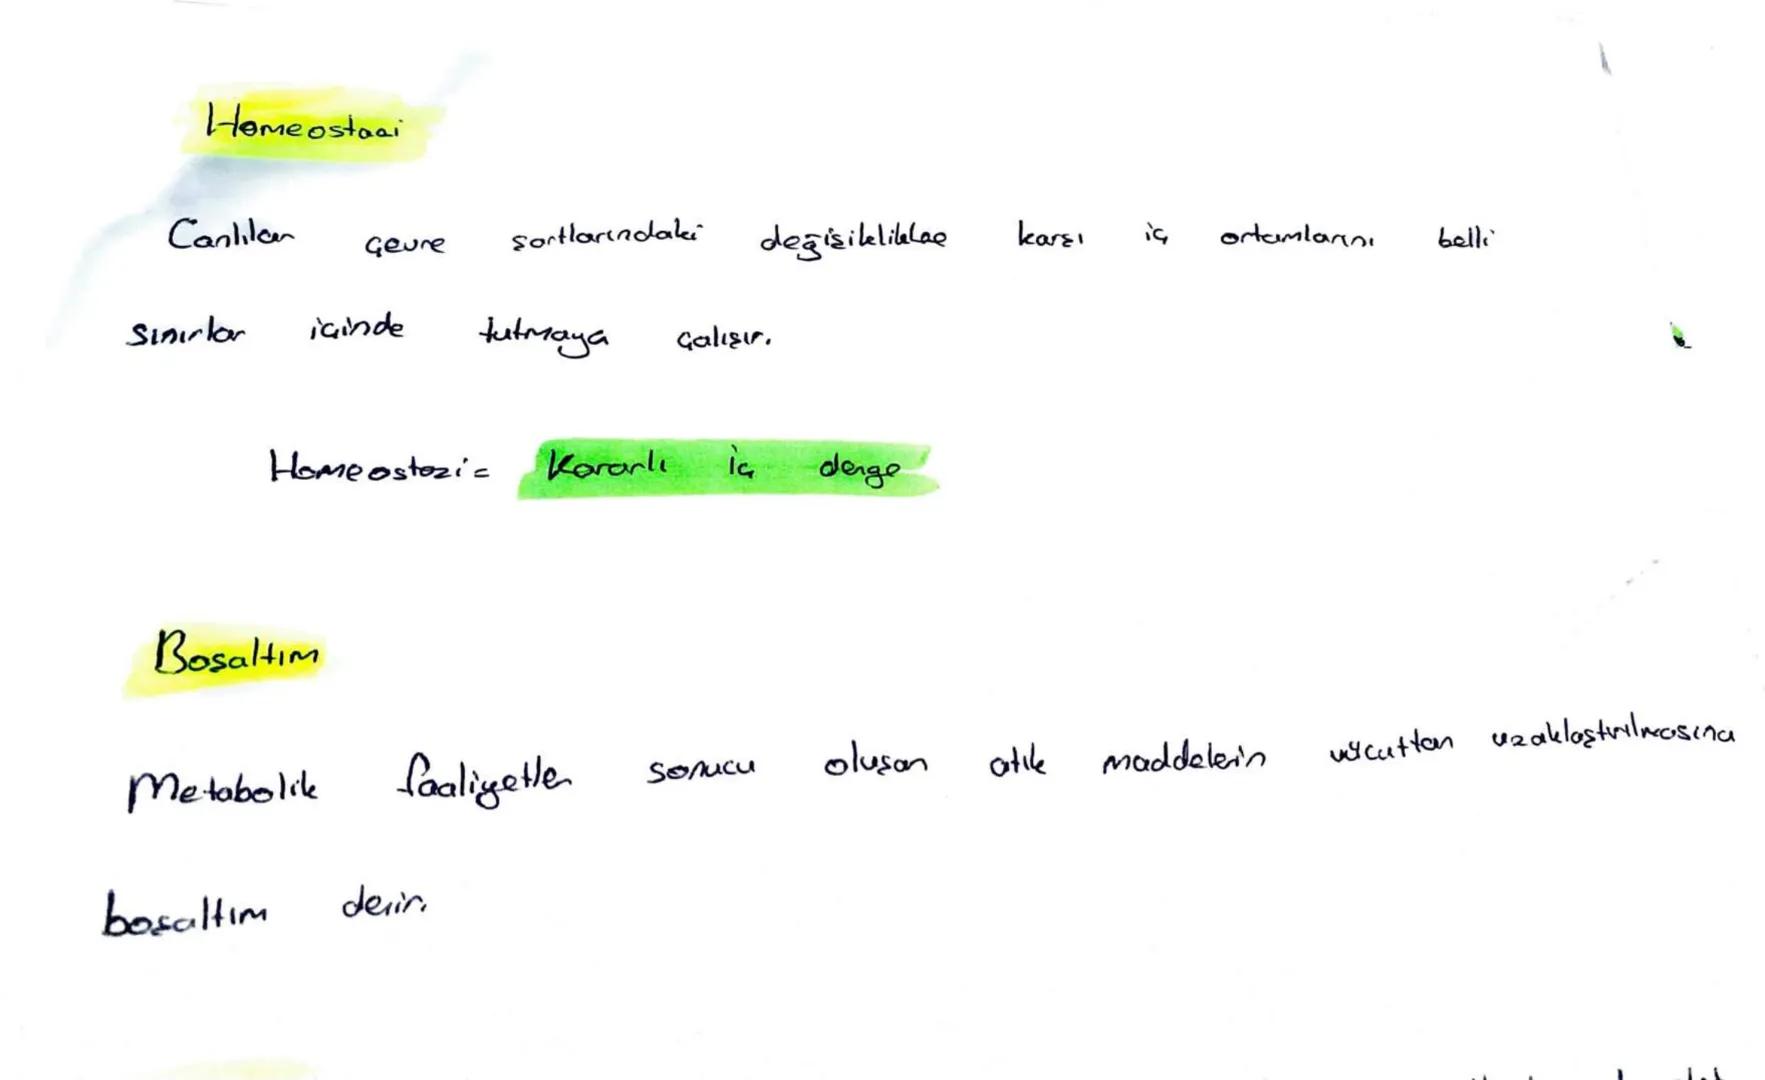 Homeostazi
Canlılar çevre şartlarındaki değişikliklere karşı iç ortamlarını belli
sınırlar içinde tutmaya çalışır.
Homeostazi= Kararlı iç denge
Boşaltım
Metabolik faaliyetler sonucu oluşan atık maddelerin vücuttan uzaklaştırılmasına
boşaltım denir.